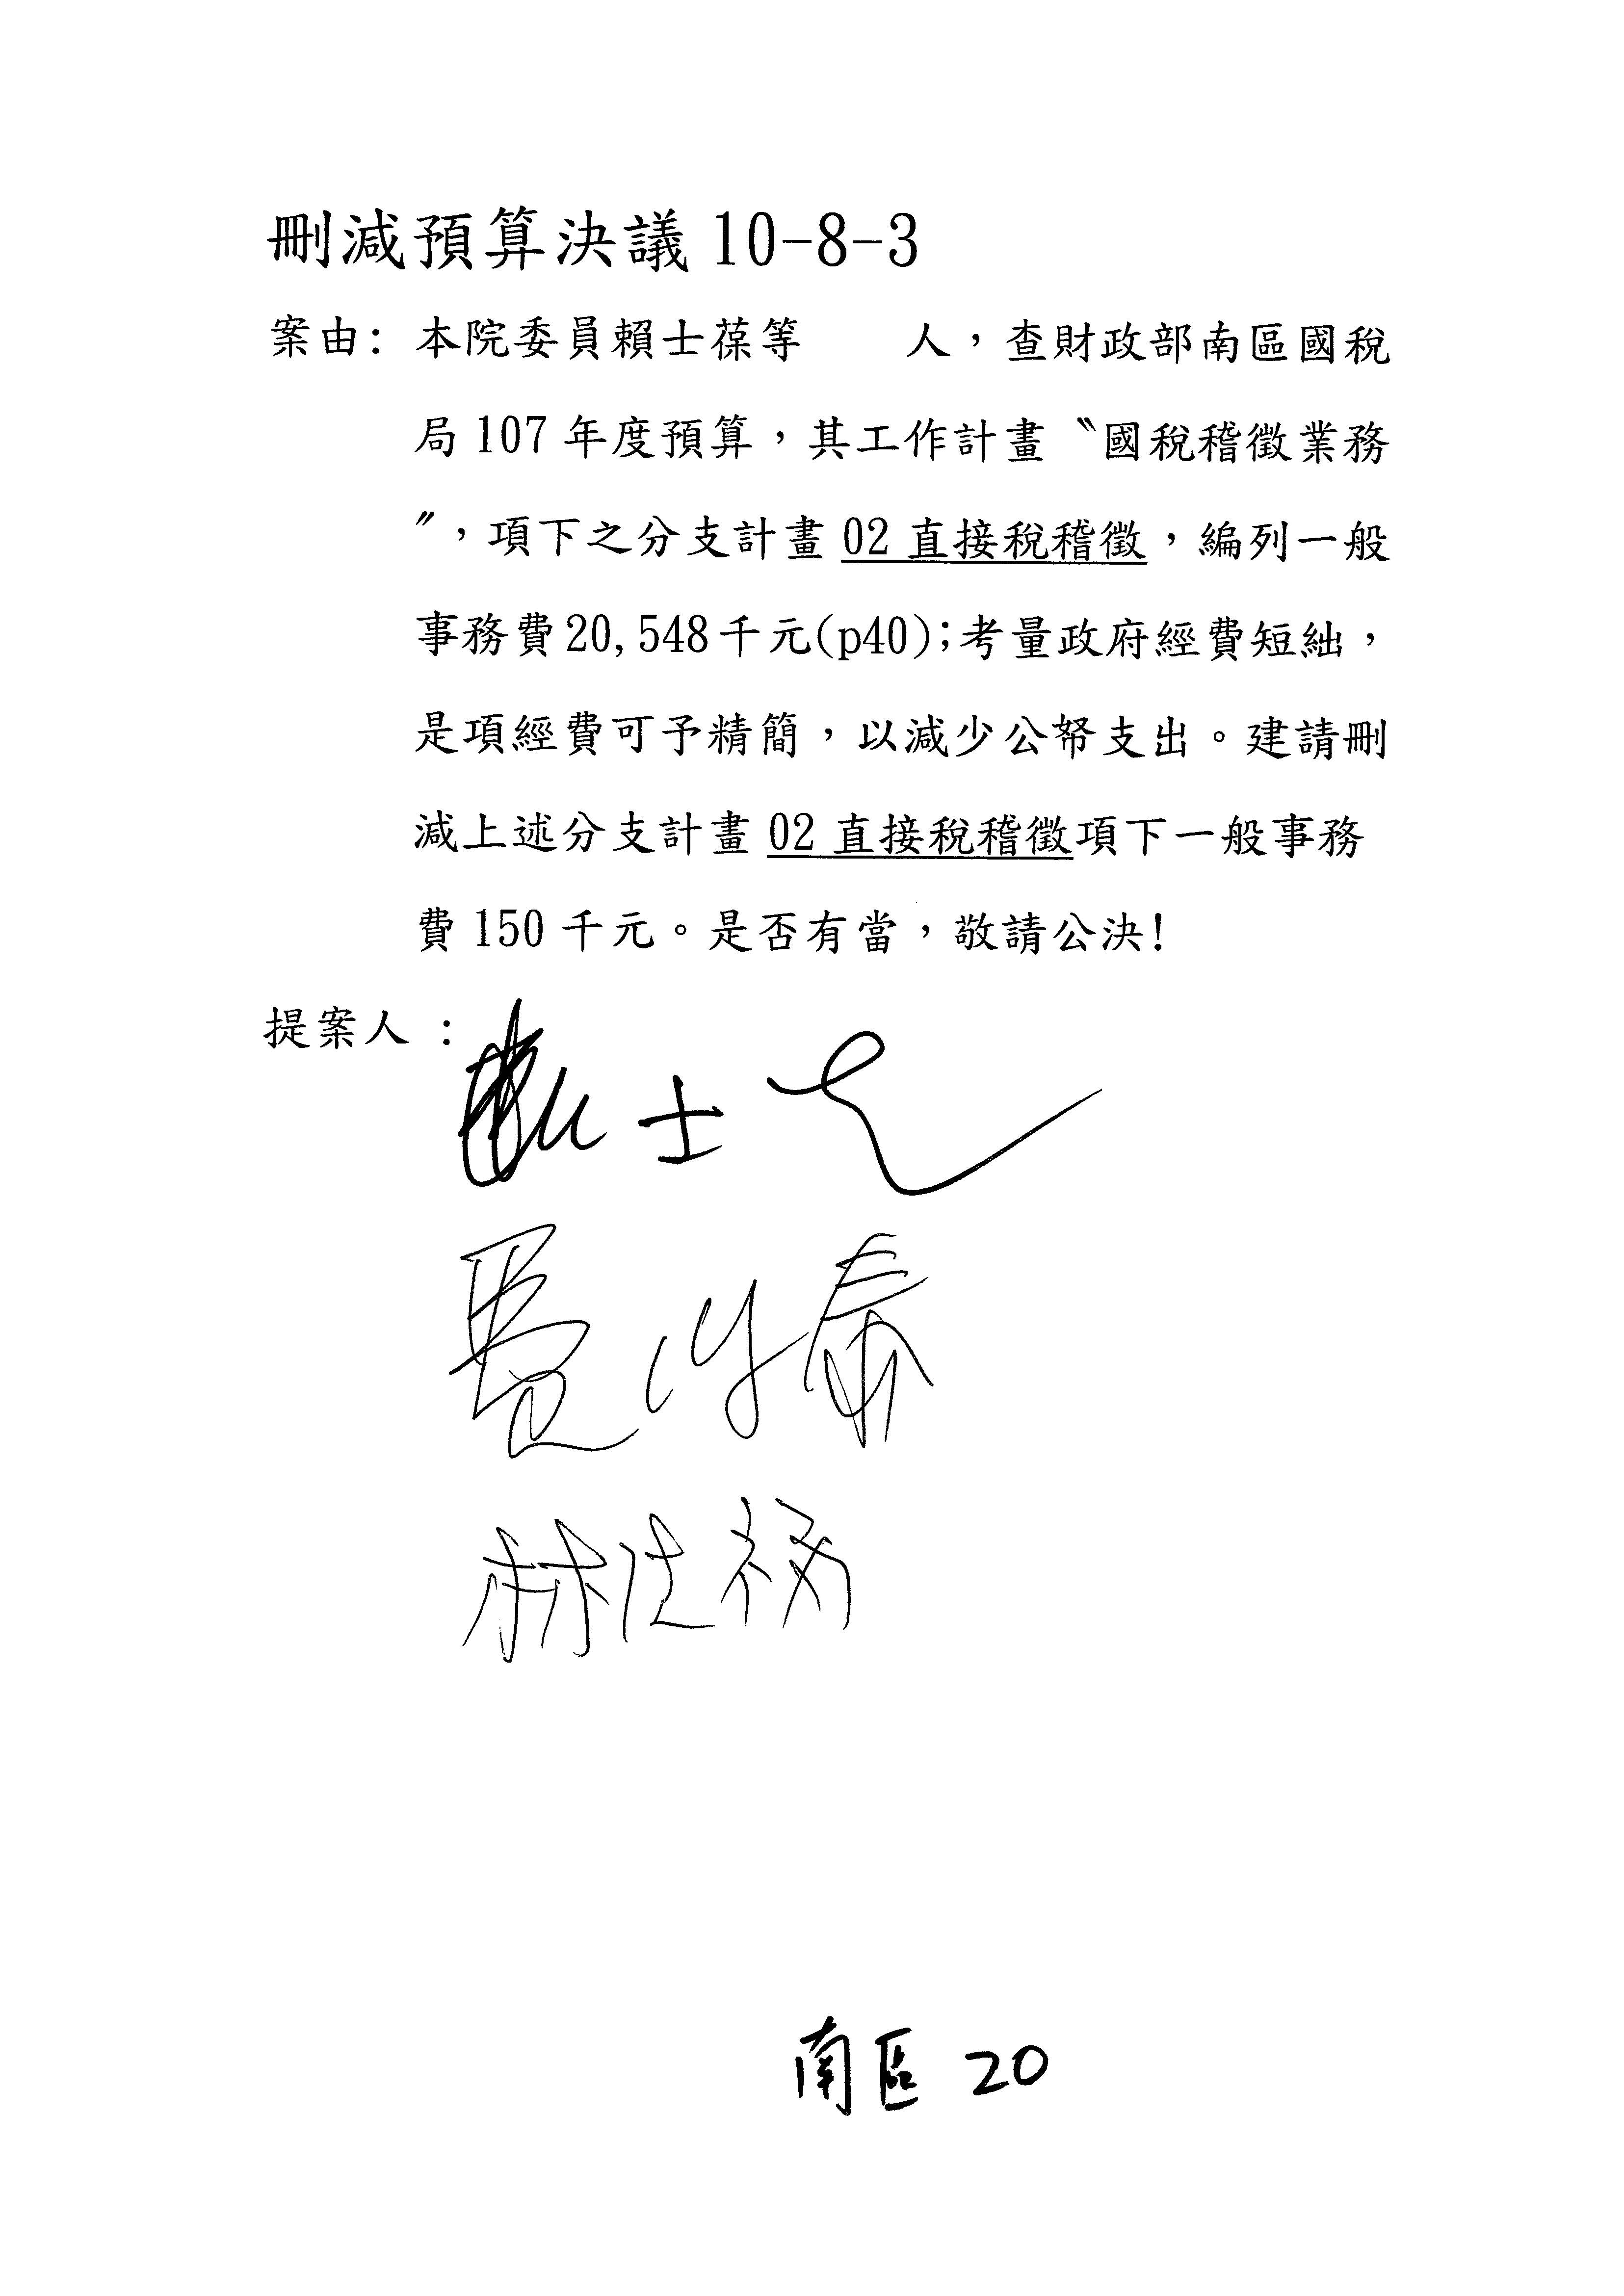 刪減預算決議 10-8-3
案由: 本院委員賴士葆等　　人，查財政部南區國稅
局 107 年度預算，其工作計畫〝國稅稽徵業務
〞，項下之分支計畫 02 直接稅稽徵，編列一般
事務費 20,548 千元(p40);考量政府經費短絀，
是項經費可予精簡，以減少公帑支出。建請刪
減上述分支計畫 02 直接稅稽徵項下一般事務
費 150 千元。是否有當，敬請公決!
提案人：
南區 20